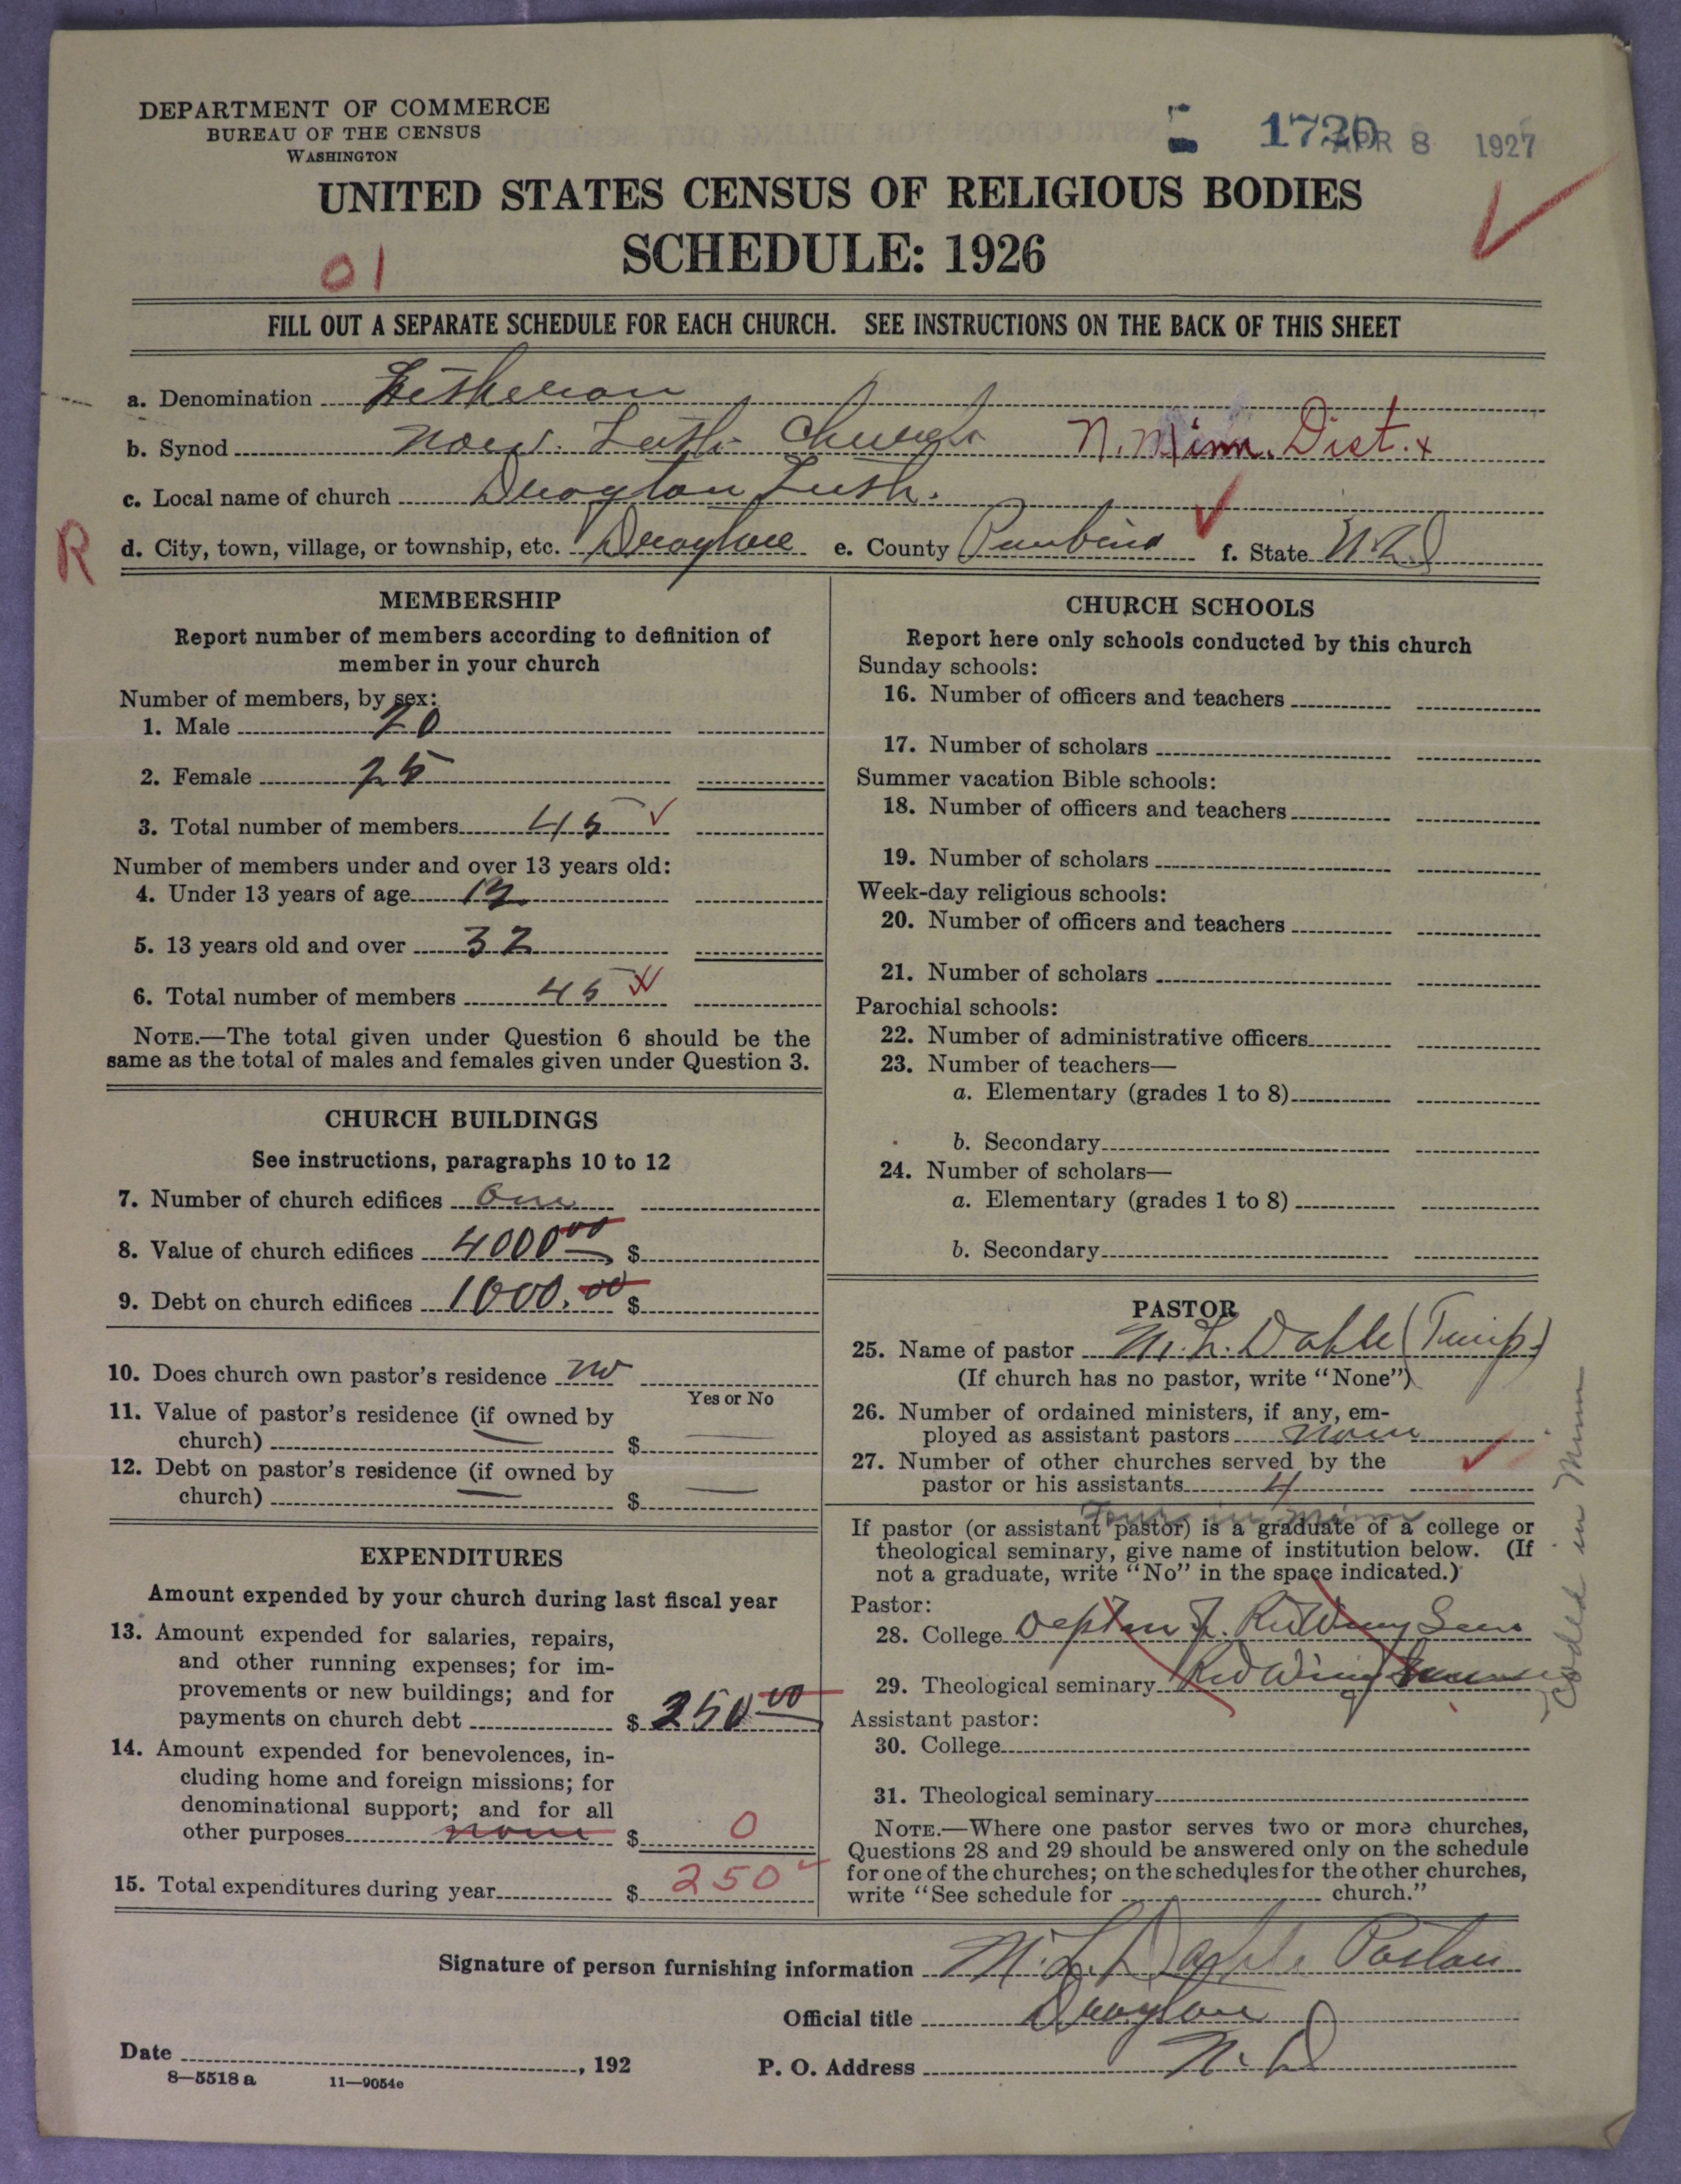 DEPARTMENT OF COMMERCE
BUREAU OF THE CENSUS
WASHINGTON
1720 APR 8 1927
UNITED STATES CENSUS OF RELIGIOUS BODIES
SCHEDULE: 1926
01
FILL OUT A SEPARATE SCHEDULE FOR EACH CHURCH. SEE INSTRUCTIONS ON THE BACK OF THIS SHEET
a. Denomination Lutheran
b. Synod Norw. Luth. Church N. Minn. Dist. x
c. Local name of church Drayton Luth.
R d. City, town, village, or township, etc. Drayton e. County Pembina f. State N.D
MEMBERSHIP
Report number of members according to definition of
member in your church
Number of members, by sex:
1. Male 20
2. Female 25
3. Total number of members 45
Number of members under and over 13 years old:
4. Under 13 years of age 13
5. 13 years old and over 32
6. Total number of members 45
NOTE.—The total given under Question 6 should be the
same as the total of males and females given under Question 3.
CHURCH BUILDINGS
See instructions, paragraphs 10 to 12
7. Number of church edifices One
8. Value of church edifices 4000.00 $
9. Debt on church edifices 1000.00 $
10. Does church own pastor's residence no
Yes or No
11. Value of pastor's residence (if owned by
church) $
12. Debt on pastor's residence (if owned by
church) $
EXPENDITURES
Amount expended by your church during last fiscal year
13. Amount expended for salaries, repairs,
and other running expenses; for im-
provements or new buildings; and for
payments on church debt $ 250.00
14. Amount expended for benevolences, in-
cluding home and foreign missions; for
denominational support; and for all
other purposes none $ 0
15. Total expenditures during year $ 250
CHURCH SCHOOLS
Report here only schools conducted by this church
Sunday schools:
16. Number of officers and teachers
17. Number of scholars
Summer vacation Bible schools:
18. Number of officers and teachers
19. Number of scholars
Week-day religious schools:
20. Number of officers and teachers
21. Number of scholars
Parochial schools:
22. Number of administrative officers
23. Number of teachers—
a. Elementary (grades 1 to 8)
b. Secondary
24. Number of scholars—
a. Elementary (grades 1 to 8)
b. Secondary
PASTOR
25. Name of pastor M. L. Dahle (Temp.)
(If church has no pastor, write "None")
26. Number of ordained ministers, if any, em-
ployed as assistant pastors None
27. Number of other churches served by the
pastor or his assistants 4
Four in Minn
If pastor (or assistant pastor) is a graduate of a college or
theological seminary, give name of institution below. (If
not a graduate, write "No" in the space indicated.)
Pastor:
28. College Red Wing Sem
29. Theological seminary Red Wing Sem
Assistant pastor:
30. College
31. Theological seminary
NOTE.—Where one pastor serves two or more churches,
Questions 28 and 29 should be answered only on the schedule
for one of the churches; on the schedules for the other churches,
write "See schedule for church."
Coded in Minn
Signature of person furnishing information M. L. Dahle Pastor
Official title Drayton
Date , 192 P. O. Address N. D
8—5518 a 11—9054c